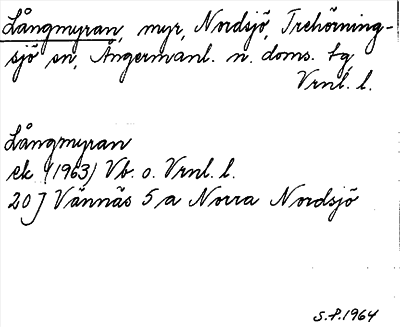 Långmyran, myr, Nordsjö, Trehörning-
sjö sn, Ångermanl. n. doms. tg,
Vrnl. l.
Långmyran
ek (1963) Vb. o. Vrnl. l.
20 J Vännäs 5 a Norra Nordsjö
S.P. 1964